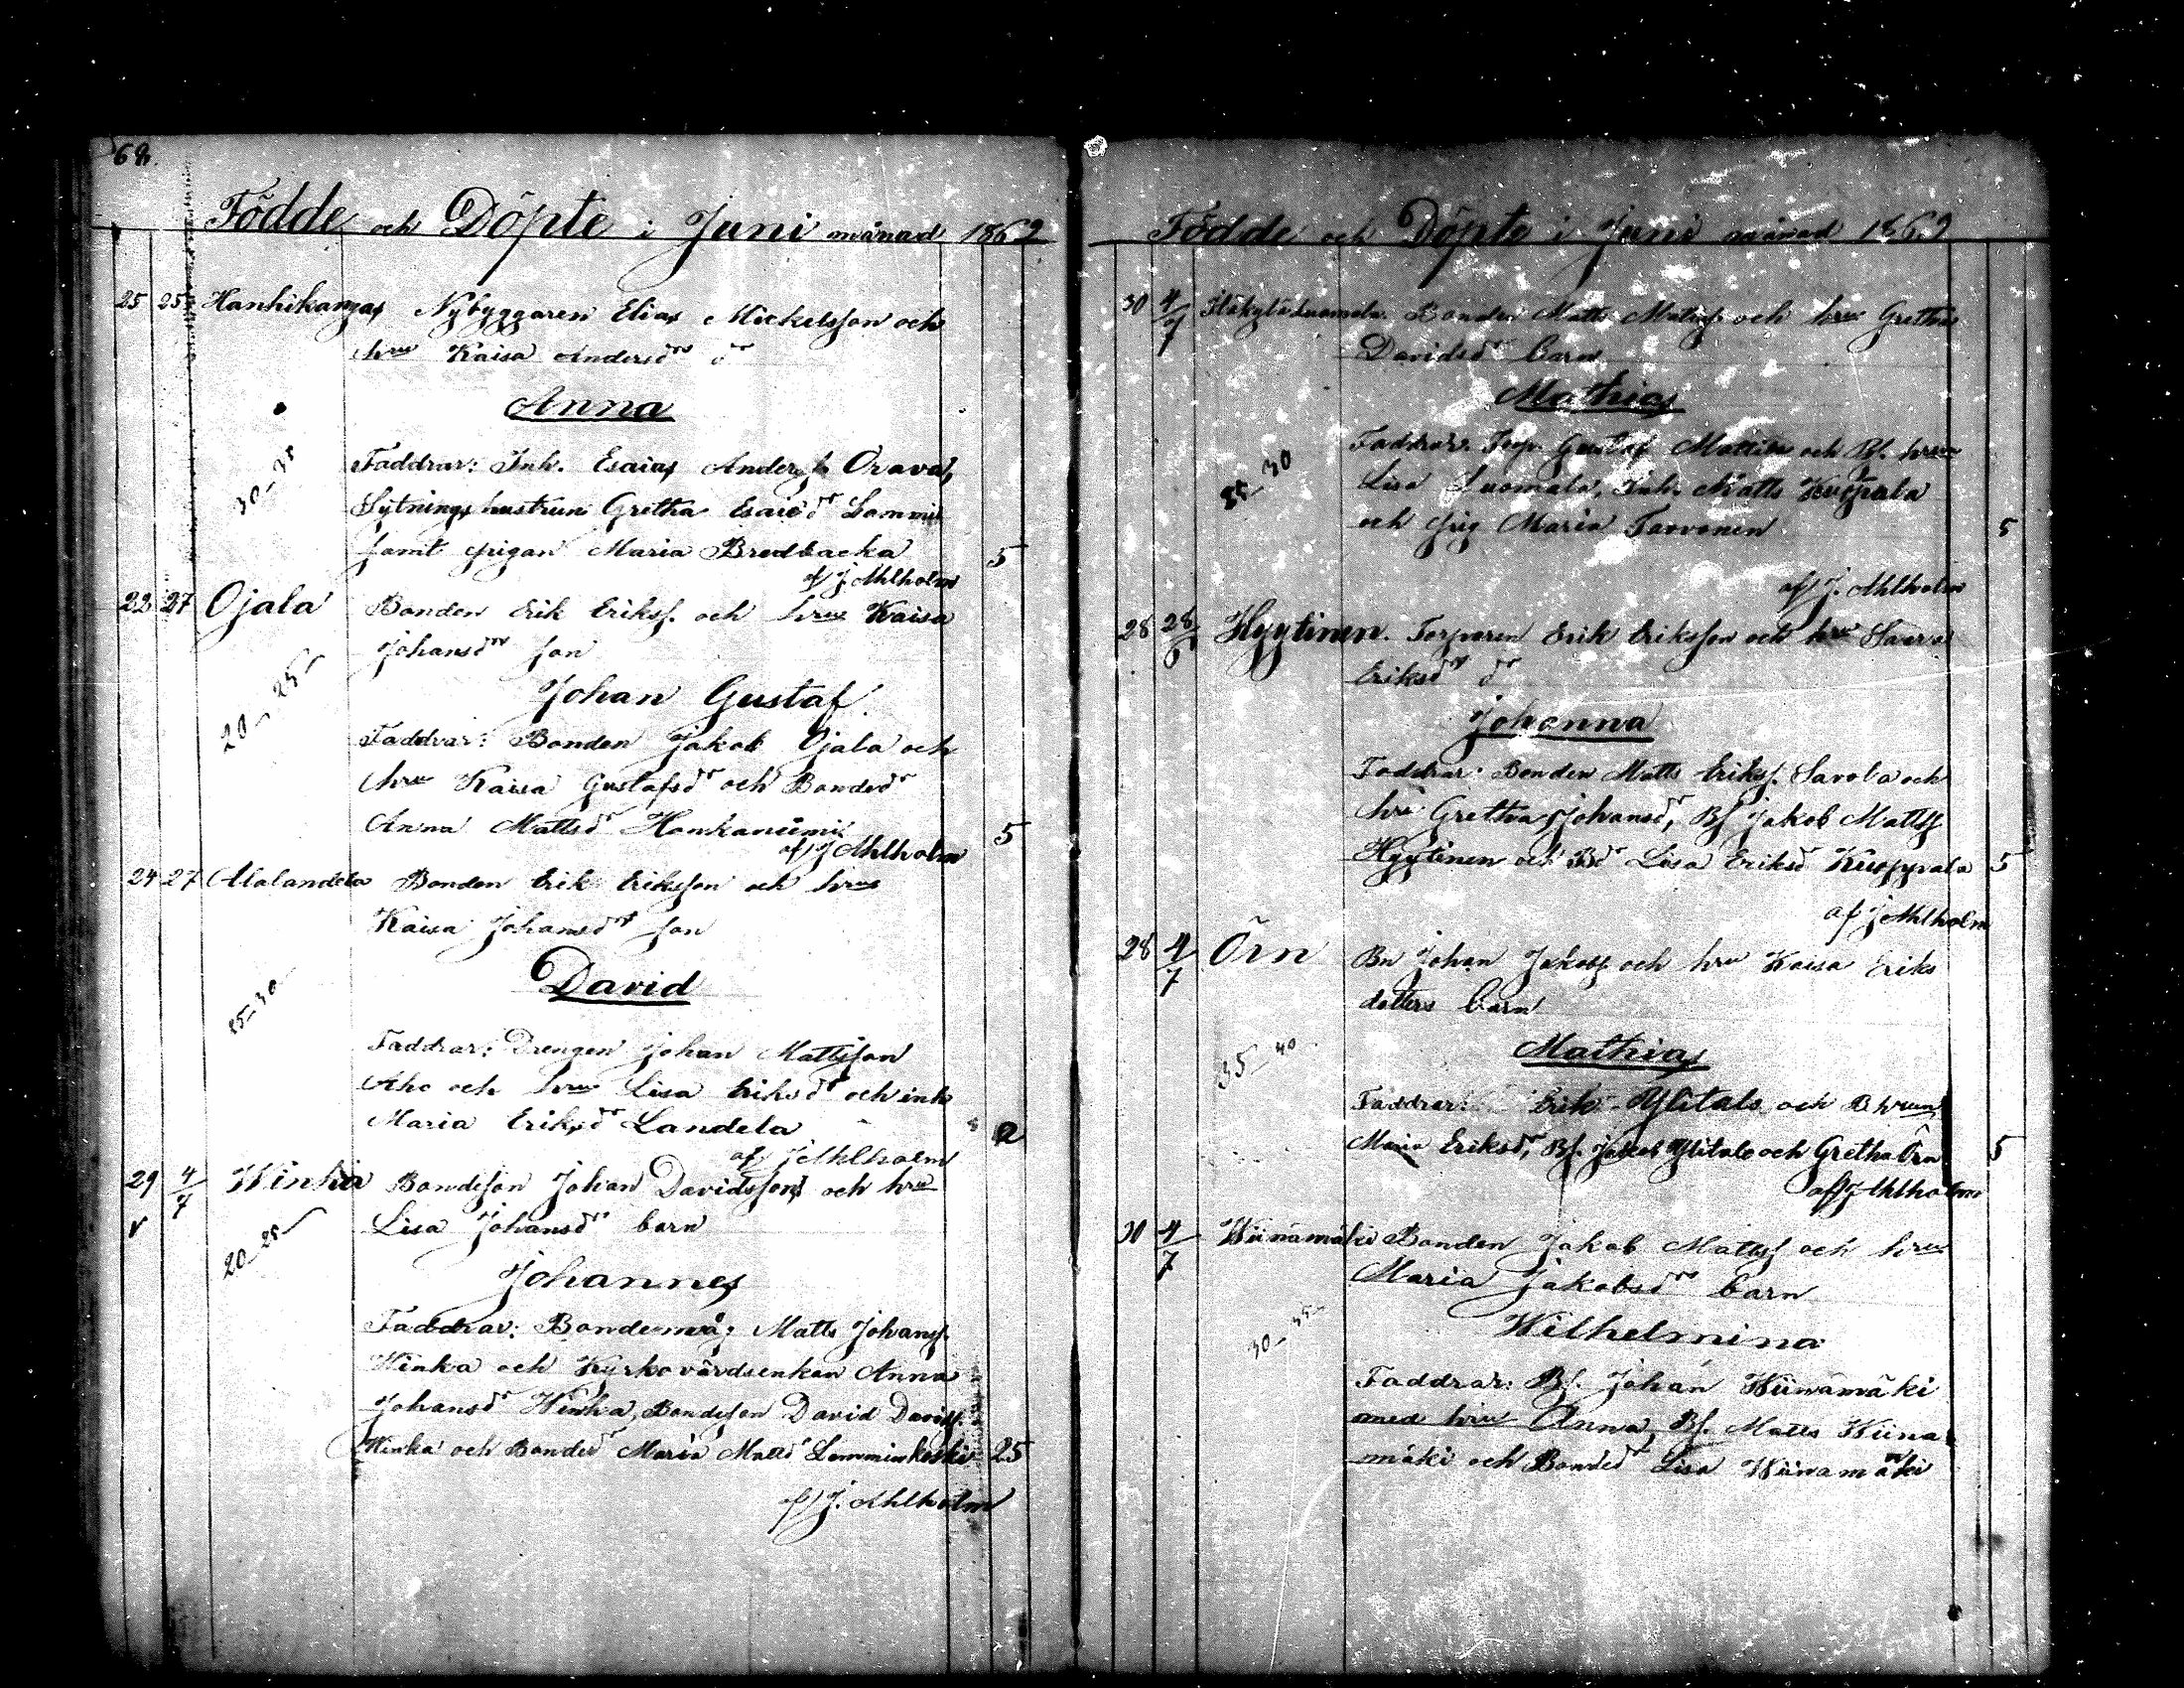 68.
Födde och Döpte i Juni månad 1862
25 25 Hanhikangas Nybyggaren Elias Mickelsson och
hru Kaisa Andersdr dr
Anna
30-35
Faddrar: Inh. Esaias Anders Orava,
Sytningshustrun Gretha Esaiedr Lammi
samt pigan Maria Bredbacka 5
af J Ahlholm
22 27 Ojala Bonden Erik Erikss. och hru Kaisa
Johansdr son
Johan Gustaf
20-25
Faddrar: Bonden Jakob Ojala och
hru Kaisa Gustafsdr och Bondedr
Anna Mattsdr 5
af J Ahlholm
24 27 Alalandela Bonden Erik Eriksson och hru
Kaisa Johansdr son
David
25-30
Faddrar: Drengen Johan Mattsson
Aho och hru Lisa Eriksdr och inh
Maria Eriksdr Landela 2
af J Ahlholm
29 4/7 Winka Bondeson Johan Davidsson och hru
Lisa Johansdr barn
20-25
Johannes
Faddrar: Bondemåg Matts Johanss.
Winka och Kyrkovärdsenkan Anna
Johansd Winka, Bondeson David Davidss.
Winka och Bondedr Maria Mattsdr Lamminkoski 25
af J. Ahlholm
Födde och Döpte i Juni månad 1862
30 4/7 Luomala. Bonden Matts Matss och hru Gretha
Davidsdr barn
Mathias
25-30
Faddrar: Torp. Gustaf Mattila och Bf. hrun
Lisa Luomala, Inh. Matts Kuppala
och pig Maria Tarvonen 5
af J. Ahlholm
28 28/6 Hyytinen. Torparen Erik Eriksson och hru Saara
Eriksdr dr
Johanna
Faddrar: Bonden Matts Eriks. Savola och
hru Gretha Johansdr, Bs Jakob Matts
Hyytinen och Bdr Lisa Eriksdr 5
af J Ahlholm
28 4/7 Örn Bn Johan Jakobs och hru Kaisa Eriks
dotters barn
Mathias
35-40
Faddrar: Erik Ylitalo och B hrun
Maria Eriksdr, Bs. Jakob Ylitalo och Gretha Örn 5
af J Ahlholm
30 4/7 Wiinamäki Bonden Jakob Mattss och hru
Maria Jakobsdr barn
Wilhelmina
30-35
Faddrar: Bs. Johan Wiinamäki
med hru Anna, Bs. Matts Wiina
mäki och Bondedr Lisa Wiinamäki